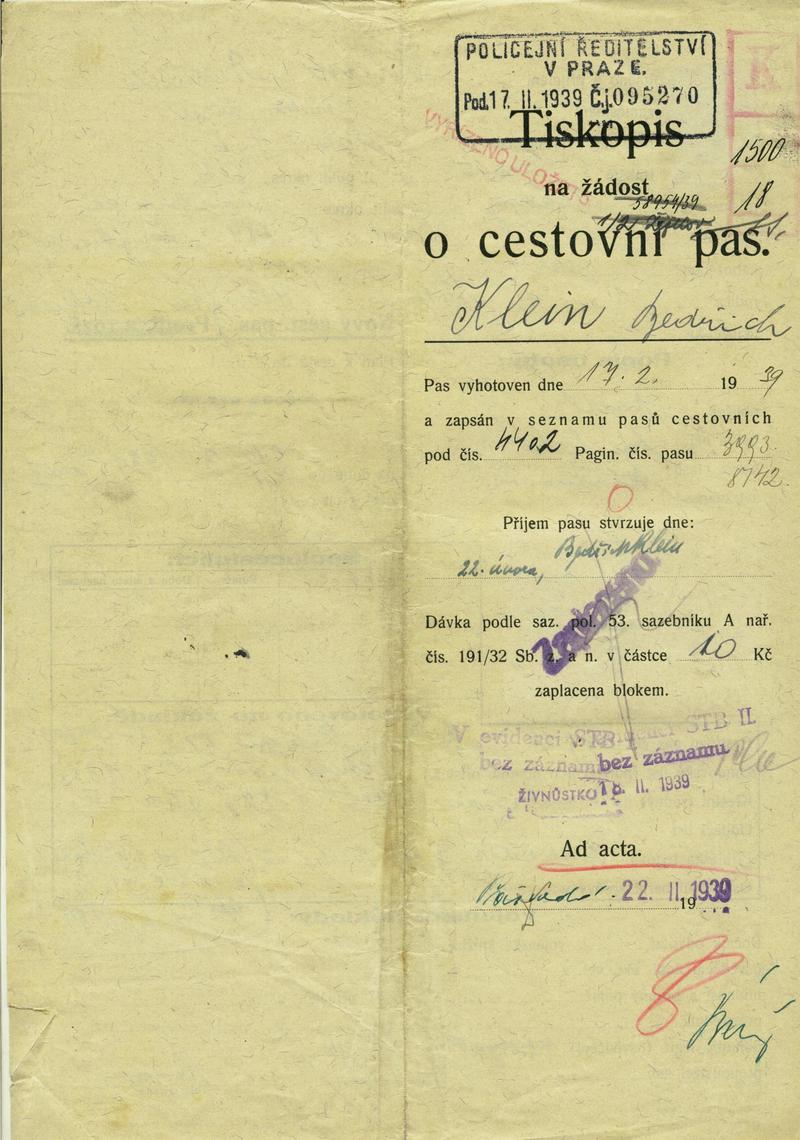 POLICEJNÍ ŘEDITELSTVÍ
V PRAZE.
Pod. 17. II. 1939 Č.j. 095270
Tiskopis
1500
na žádost
18
58954/39
o cestovní pas.
Klein Bedřich
Pas vyhotoven dne 17. 2. 1939
a zapsán v seznamu pasů cestovních
pod čís. 4402 Pagin. čís. pasu 3993
8742
Příjem pasu stvrzuje dne:
Bedřich Klein
22. února,
Dávka podle saz. pol. 53. sazebníku A nař.
čís. 191/32 Sb. z. a n. v částce 10 Kč
zaplacena blokem.
V evidenci STB II
bez záznamu bez záznamu
ŽIVNŮSTKO 18. II. 1939
Ad acta.
22 II. 1939
19